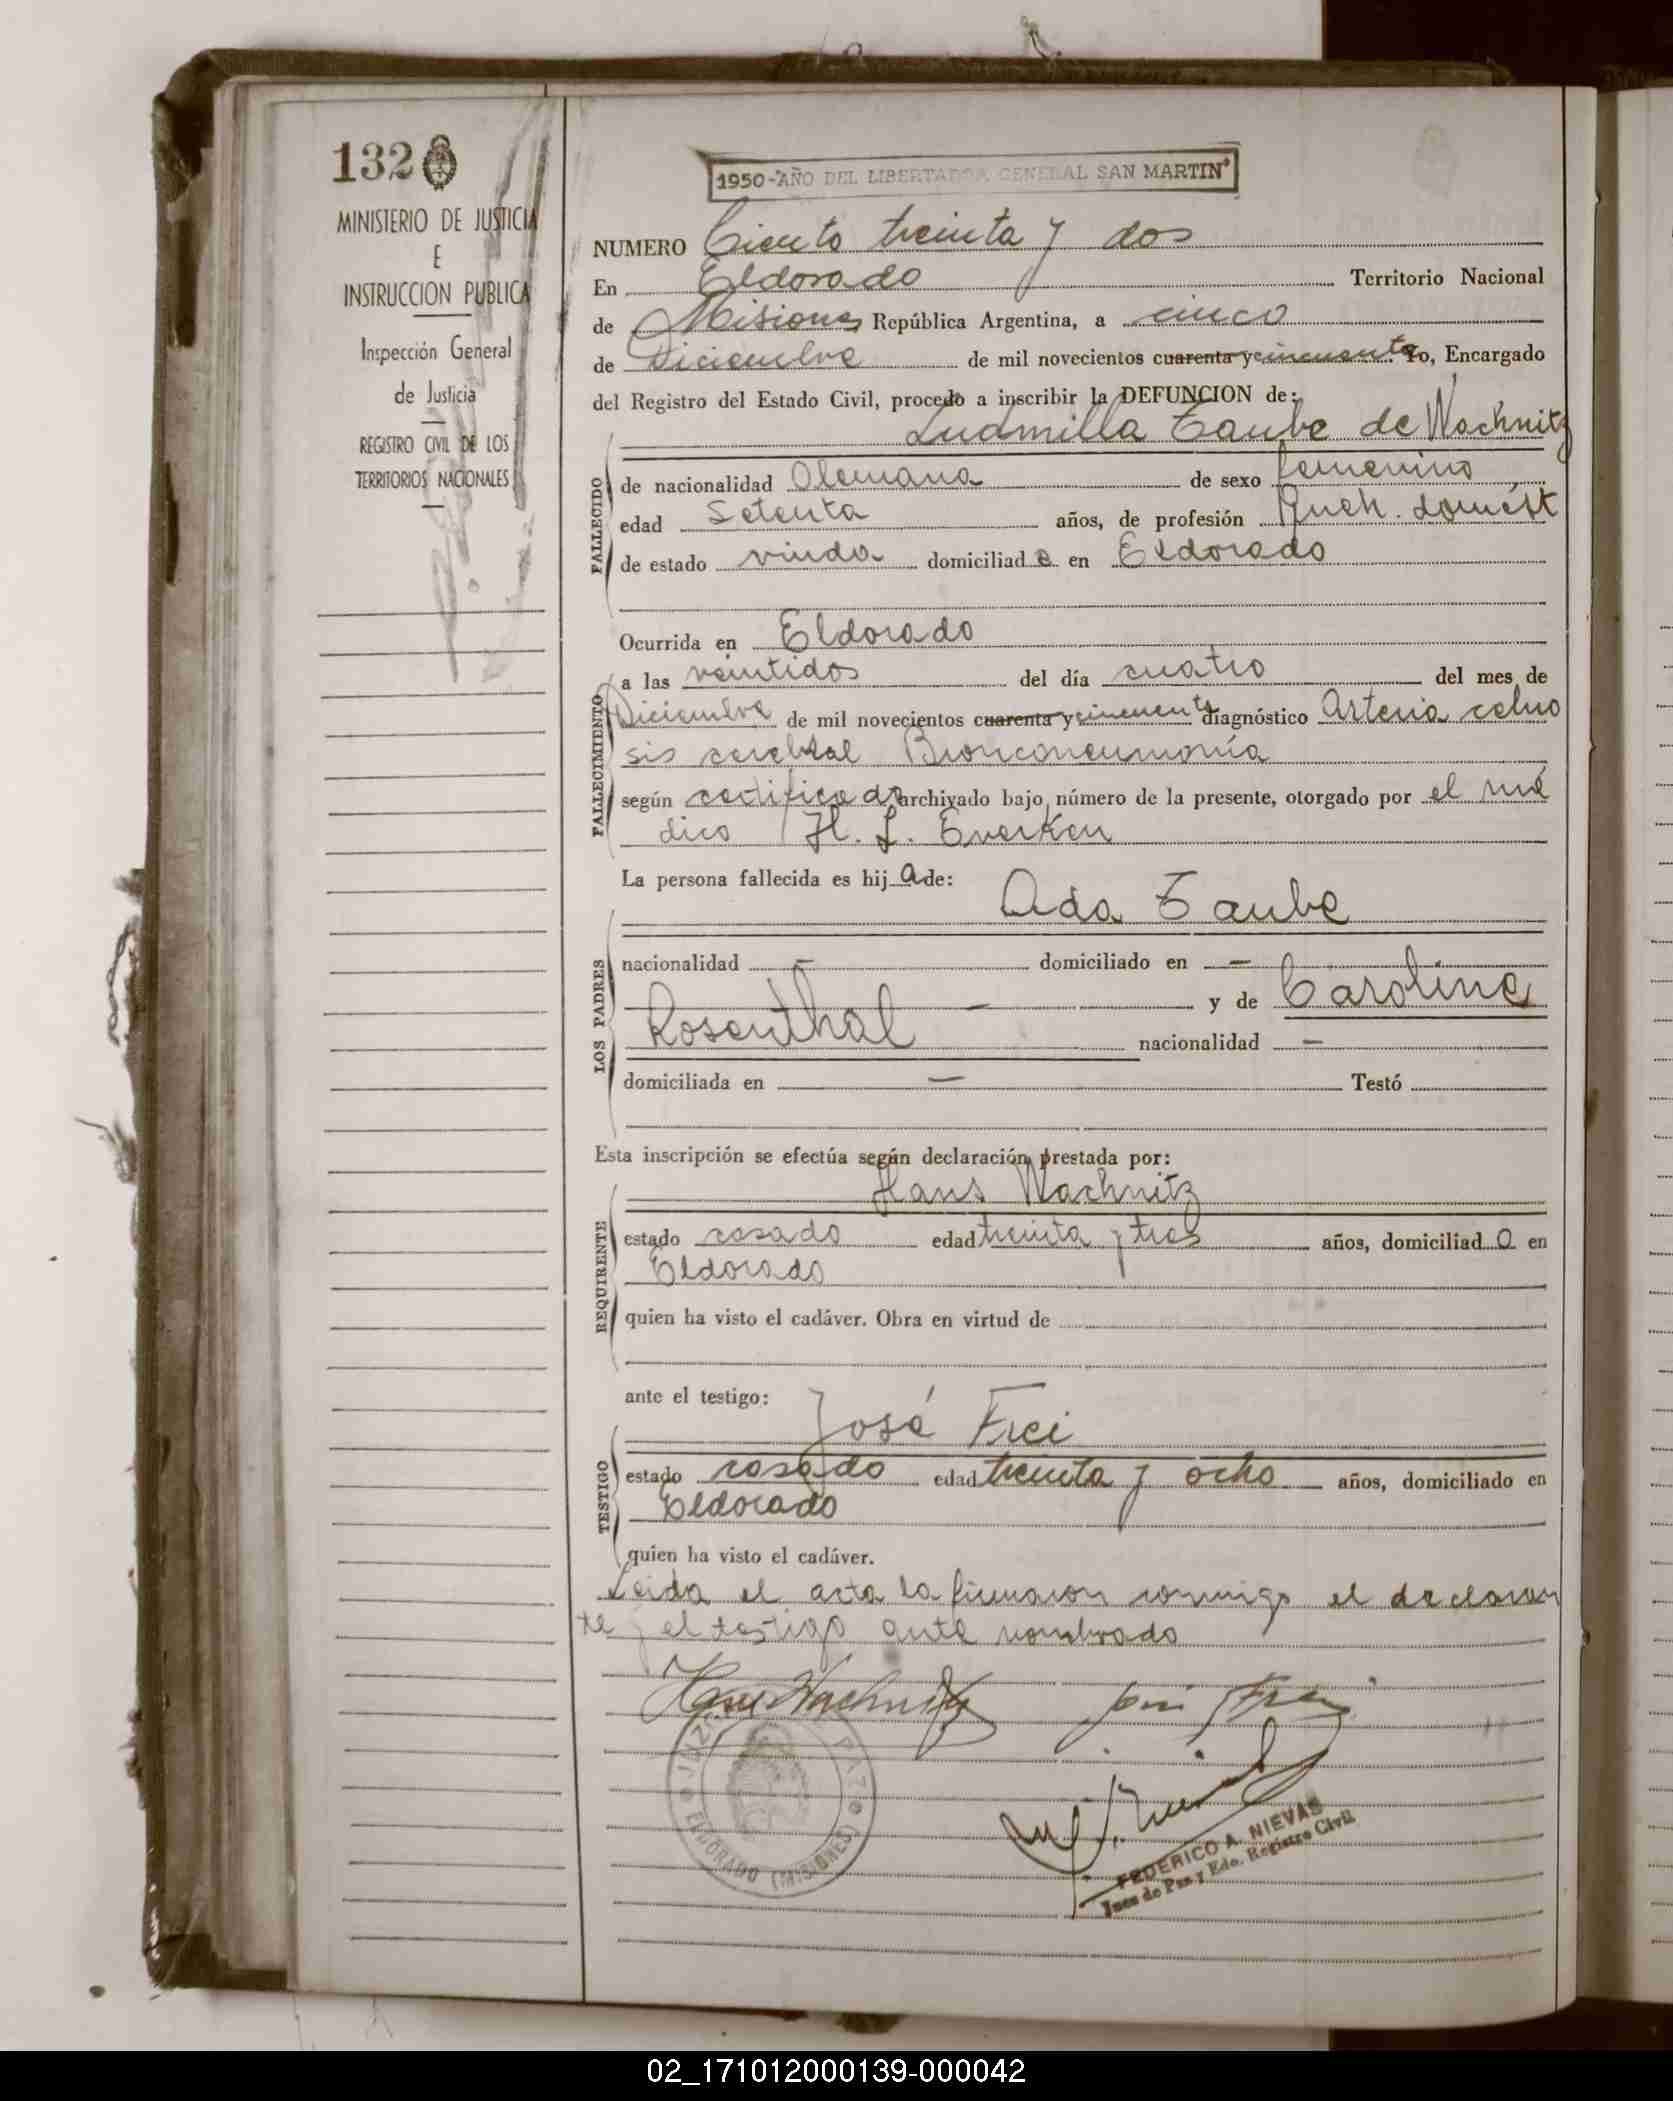 132
MINISTERIO DE JUSTICIA
E
INSTRUCCION PUBLICA
Inspección General
de Justicia
REGISTRO CIVIL DE LOS
TERRITORIOS NACIONALES
1950-"AÑO DEL LIBERTADOR GENERAL SAN MARTIN"
NUMERO Ciento treinta y dos
En Eldorado Territorio Nacional
de Misiones República Argentina, a cinco
de Diciembre de mil novecientos cuarenta y cincuenta Yo, Encargado
del Registro del Estado Civil, procedo a inscribir la DEFUNCION de:
Ludmilla Taube de Wachnitz
FALLECIDO
de nacionalidad Alemana de sexo femenino
edad Setenta años, de profesión Queh. domést
de estado viuda domiciliad a en Eldorado
Ocurrida en Eldorado
FALLECIMIENTO
a las veintidos del día cuatro del mes de
Diciembre de mil novecientos cuarenta y cincuenta diagnóstico Arteria
sis cerebral Bronconeumonía
según certificado archivado bajo número de la presente, otorgado por el mé
dico H. L. Everken
La persona fallecida es hij a de:
Ada Taube
LOS PADRES
nacionalidad – domiciliado en –
– y de Caroline
Rosenthal nacionalidad –
domiciliada en – Testó
Esta inscripción se efectúa según declaración prestada por:
Hans Wachnitz
REQUIRENTE
estado casado edad treinta y tres años, domiciliad o en
Eldorado
quien ha visto el cadáver. Obra en virtud de
ante el testigo:
José Frei
TESTIGO
estado casado edad treinta y ocho años, domiciliado en
Eldorado
quien ha visto el cadáver.
Leida el acta la firmaron conmigo el declaran
te y el testigo ante nombrado
Hans Wachnitz José Frei
JUZ PAZ
ELDORADO (MISIONES)
FEDERICO A. NIEVAS
Juez de Paz y Edo. Registro Civil
02_171012000139-000042